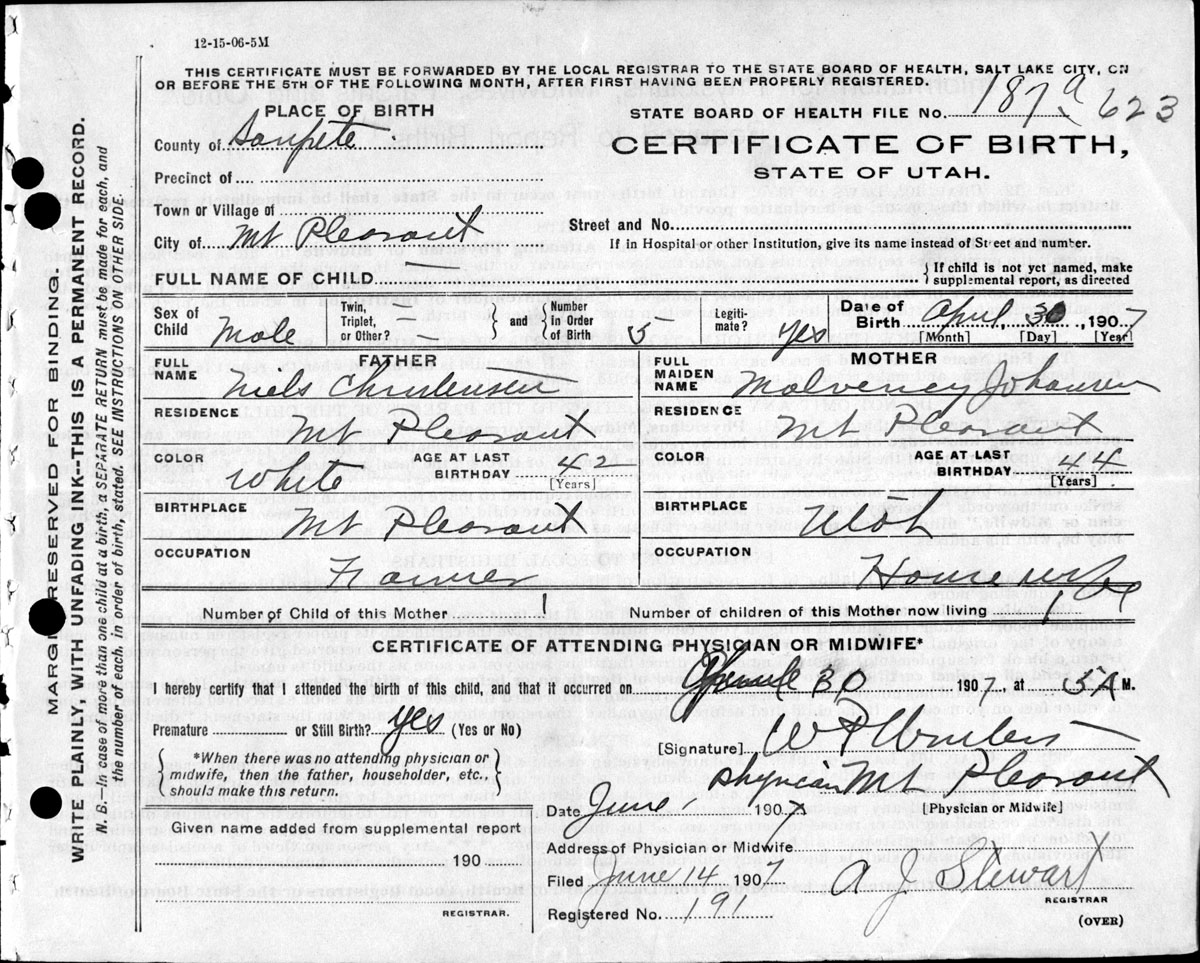 12-15-06-5M
THIS CERTIFICATE MUST BE FORWARDED BY THE LOCAL REGISTRAR TO THE STATE BOARD OF HEALTH, SALT LAKE CITY, ON
OR BEFORE THE 5TH OF THE FOLLOWING MONTH, AFTER FIRST HAVING BEEN PROPERLY REGISTERED.
PLACE OF BIRTH
STATE BOARD OF HEALTH FILE No. 187a 623
County of Sanpete
CERTIFICATE OF BIRTH,
STATE OF UTAH.
Precinct of
Town or Village of
Street and No.
City of Mt Pleasant
If in Hospital or other Institution, give its name instead of Street and number.
FULL NAME OF CHILD — } If child is not yet named, make supplemental report, as directed
Sex of Child Male Twin, Triplet, or Other? — } and { Number In Order of Birth 5 Legiti- mate? yes Date of Birth April, 30, 1907
[Month] [Day] [Year]
FATHER
FULL NAME Niels Christensen
RESIDENCE
Mt Pleasant
COLOR White AGE AT LAST BIRTHDAY 42
[Years]
BIRTHPLACE Mt Pleasant
OCCUPATION
Farmer
MOTHER
FULL MAIDEN NAME Johansen
RESIDENCE
Mt Pleasant
COLOR AGE AT LAST BIRTHDAY 44
[Years]
BIRTHPLACE Utah
OCCUPATION
Housewife
Number of Child of this Mother 1 Number of children of this Mother now living 1
CERTIFICATE OF ATTENDING PHYSICIAN OR MIDWIFE*
I hereby certify that I attended the birth of this child, and that it occurred on April 30 1907, at 5 A M.
Premature or Still Birth? yes (Yes or No)
{ *When there was no attending physician or midwife, then the father, householder, etc., should make this return. }
[Signature] W P
Physician Mt Pleasant
Date June, 1907 [Physician or Midwife]
Given name added from supplemental report
190
REGISTRAR.
Address of Physician or Midwife
Filed June 14 1907 A J Stewart
REGISTRAR
Registered No. 191
(OVER)
MARGIN RESERVED FOR BINDING
WRITE PLAINLY, WITH UNFADING INK--THIS IS A PERMANENT RECORD.
N. B.—In case of more than one child at a birth, a SEPARATE RETURN must be made for each, and
the number of each, in order of birth, stated. SEE INSTRUCTIONS ON OTHER SIDE.